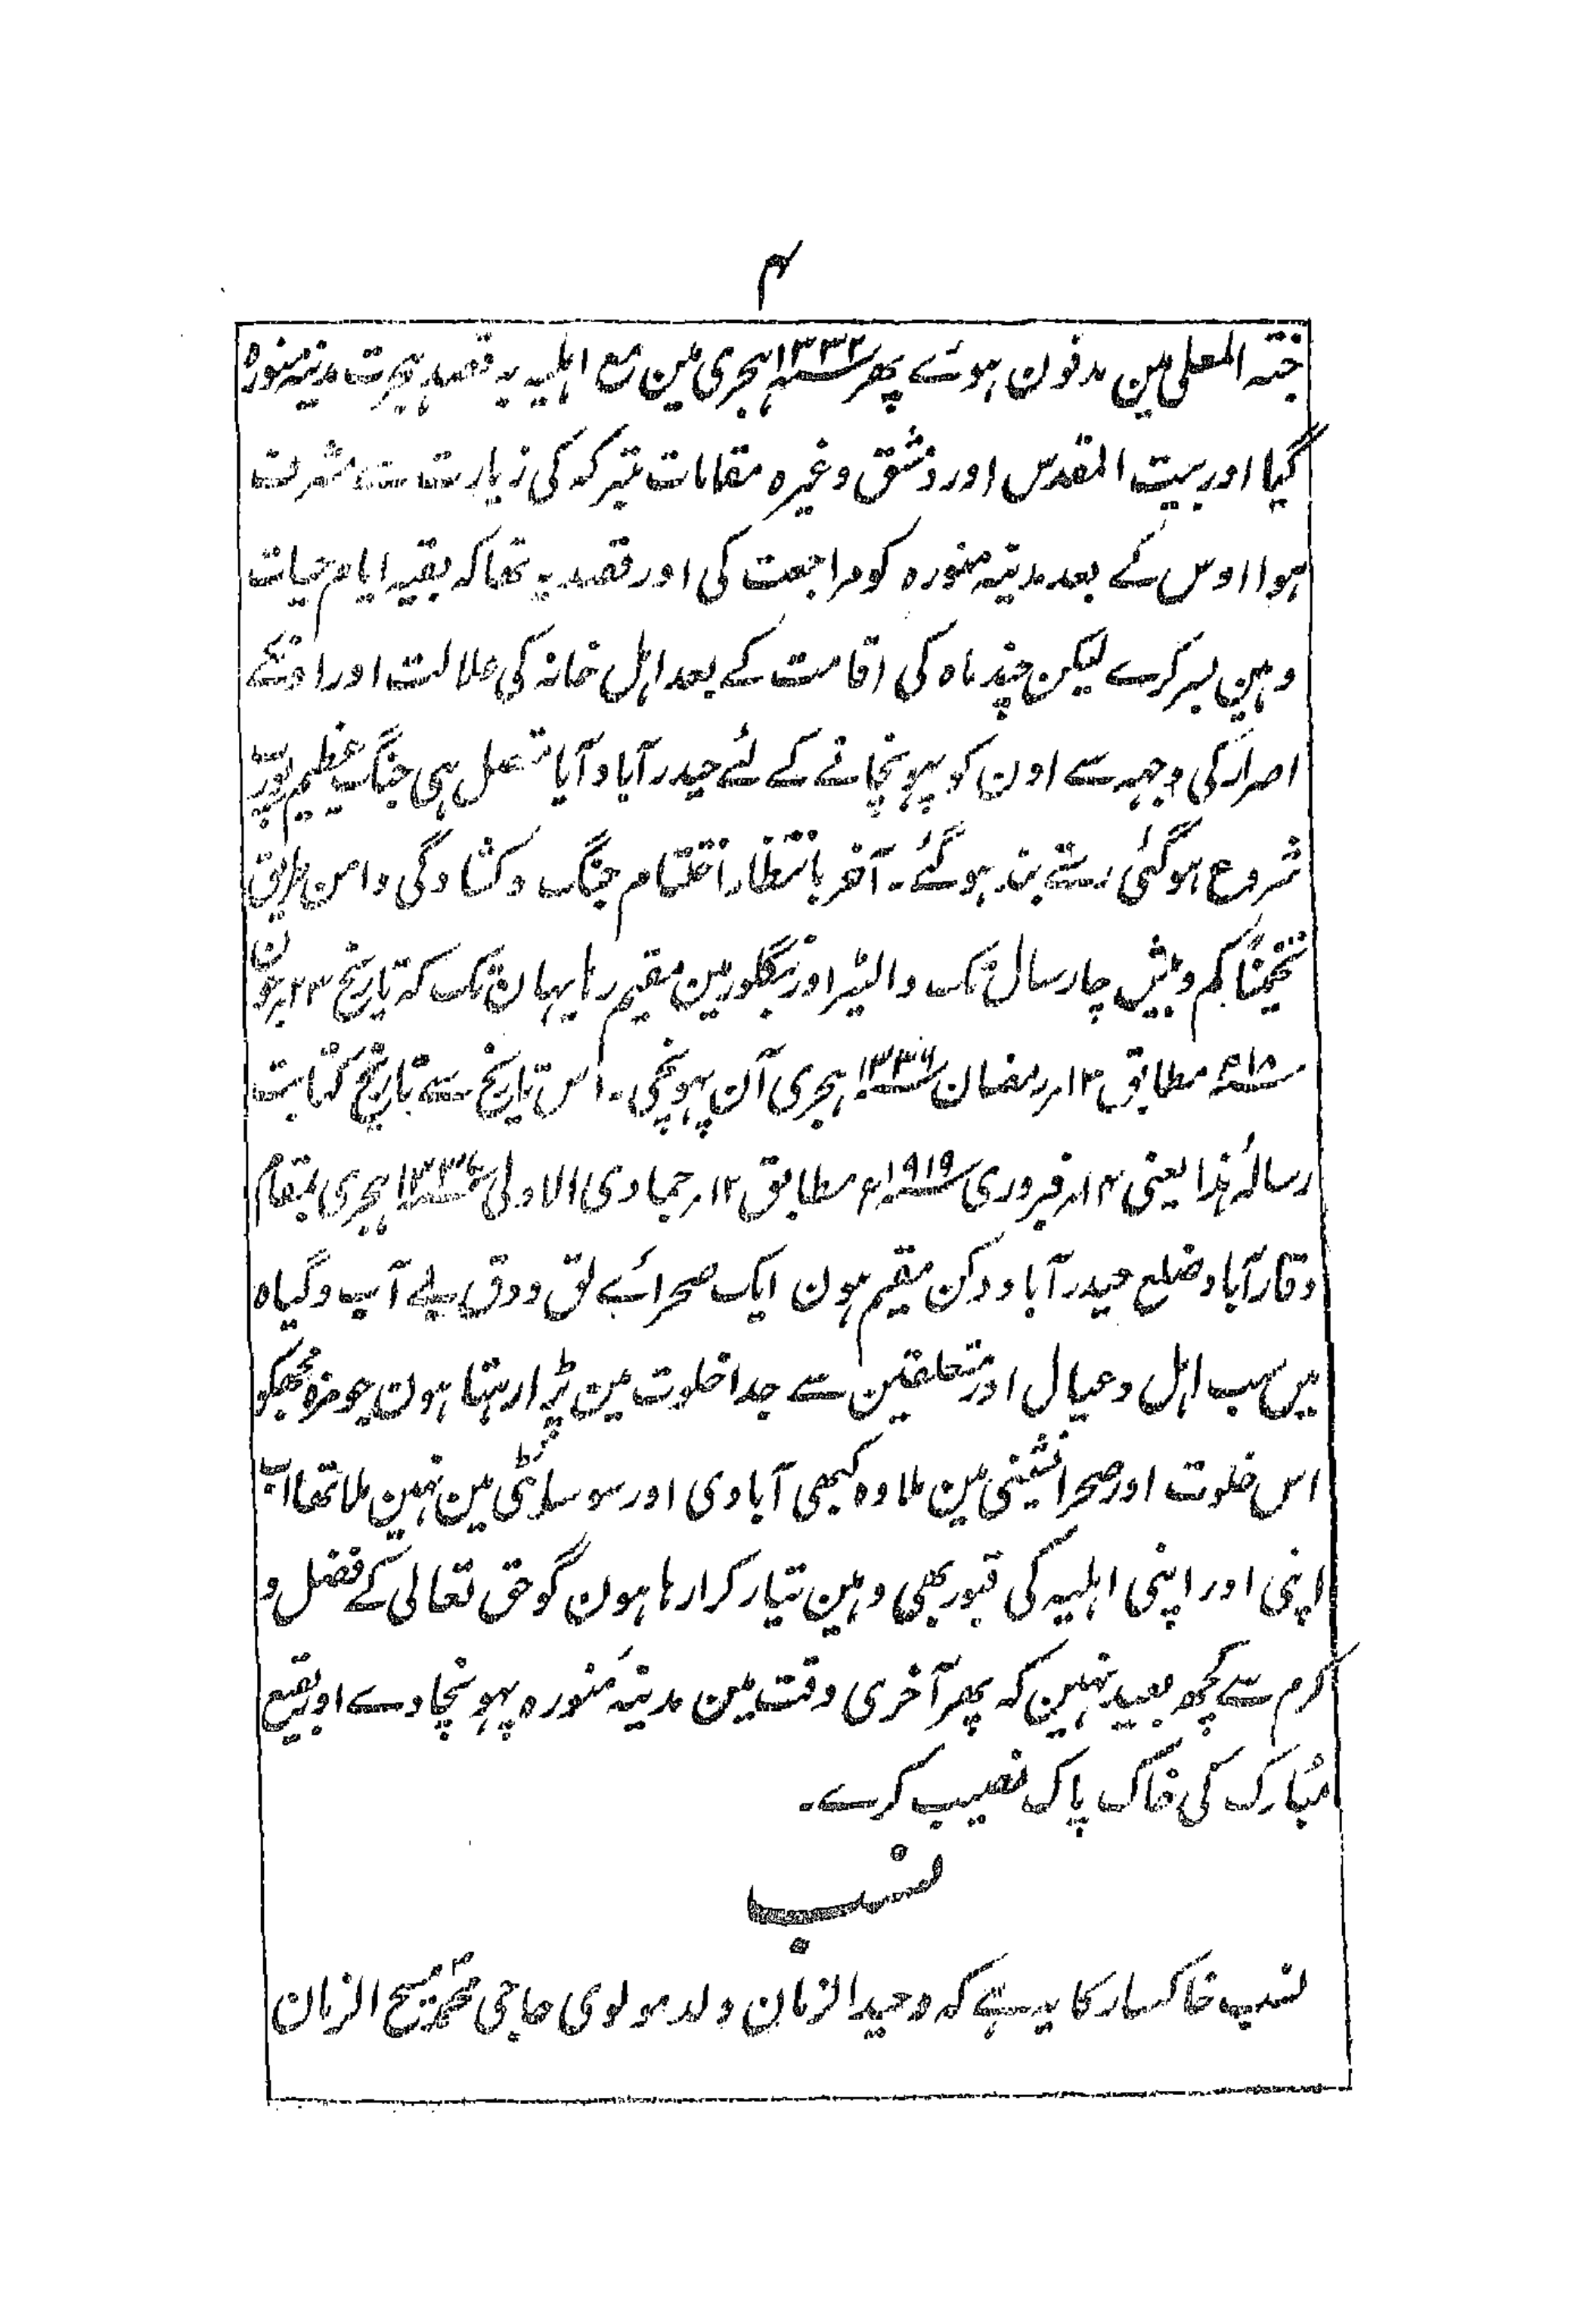 ۴
جنتہ المعلی مین مدفون ہوئے پھر ۱۳۳۲ہجری مین مع اہلیہ بہ قصد ہجرت مدینہ منورہ
گیا اور بیت المقدس اور دمشق وغیرہ مقامات متبرکہ کی زیارت سے مشرف
ہوا اوس کے بعد مدینہ منورہ کو مراجعت کی اور قصد یہ تھا کہ بقیہ ایام حیات
وہین بسر کرے لیکن چند ماہ کی اقامت کے بعد اہل خانہ کی علالت اور اونکے
اصرار کی وجہہ سے اون کو پہونچانے کے لئے حیدرآباد آیا متصل ہی جنگ عظیم یورپ
شروع ہوگئی رستے بند ہوگئے۔ آخر بانتظار اختتام جنگ وکشادگی وامن طریق
تخمیناً کم وبیش چار سال تک والیٹر اور بنگلور مین مقیم رہا یہان تک کہ تاریخ ۲۳ جون
۱۸ء مطابق ۱۳؍ رمضان ۱۳۳۶ ہجری آن پہونچی۔ اس تاریخ سے تاریخ کتابت
رسالۂ ہذا یعنی ۱۴؍ فروری ۱۹۱۹ء مطابق ۱۲؍ جمادی الاولی ۱۳۳۷ ہجری بمقام
وقارآباد ضلع حیدرآباد دکن مقیم ہون ایک صحرائے لق ودق بے آب وگیاہ
میں سب اہل وعیال اور متعلقین سے جدا خلوت مین پڑا رہتا ہون جو مزہ مجھکو
اس خلوت اور صحرا نشینی مین ملا وہ کبھی آبادی اور سوسائٹی مین نہین ملا تھا اب
اپنی اور اپنی اہلیہ کی قبور بھی وہین تیار کرا رہا ہون گو حق تعالی کے فضل و
کرم سے کچھ بعید نہین کہ پھر آخری وقت مین مدینہ منورہ پہونچادے اور بقیع
مبارک کی خاک پاک نصیب کرے۔
نسب
نسب خاکسار کا یہ ہے کہ وحید الزمان ولد مولوی حاجی محمد مسیح الزمان